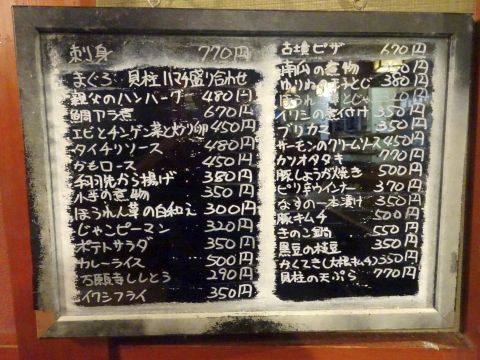 刺身 770円
まぐろ 貝柱 ハマチ盛り合わせ
親なのハンバーグ 480円
鯛アラ煮 670円
エビとチンゲン菜と炒り卵 450円
タイチリソース 480円
かもロース 450円
手羽先から揚げ 380円
小芋の煮物 350円
ほうれん草の白和え 300円
じゃこピーマン 320円
ポテトサラダ 350円
カレーライス 500円
万願寺ししとう 290円
イワシフライ 350円
古墳ピザ 670円
南瓜の煮物 350
ゆりねの玉子とじ 380
イワシの煮付け 350円
ブリカマ 350円
サーモンのクリームソース 450円
カツオタタキ 770円
豚しょうが焼き 500円
ピリ辛ウインナー 370円
なすの一本漬け 350円
豚キムチ 500円
きのこ鍋 550円
黒豆の枝豆 350円
かくてき(大根キムチ) 350円
貝柱の天ぷら 770円